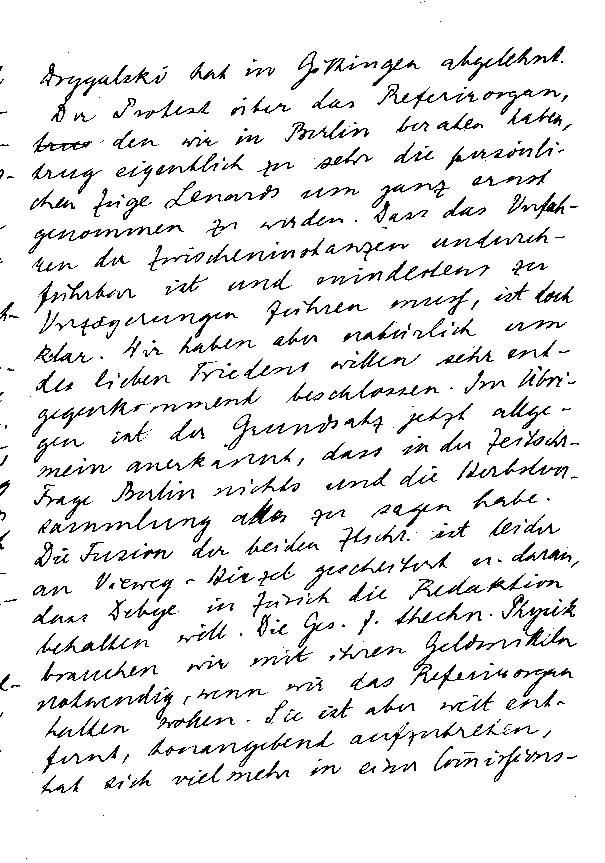 Drygalski hat in Göttingen abgelehnt.
Der Protest über das Referierorgan,
den wir in Berlin beraten haben,
trug eigentlich zu sehr die persönli-
chen Züge Lenards um ganz ernst
genommen zu werden. Dass das Verfah-
ren der Zwischeninstanzen undurch-
führbar ist und mindestens zu
Verzögerungen führen muss, ist doch
klar. Wir haben aber natürlich um
des lieben Friedens willen sehr ent-
gegenkommend beschlossen. Im Übri-
gen ist der Grundsatz jetzt allge-
mein anerkannt, dass in der Zeitschr.
Frage Berlin nichts und die Herbstver-
sammlung alles zu sagen habe.
Die Fusion der beiden Ztschr. ist leider
an Vieweg-Hirzel gescheitert u. daran,
dass Debye in Zürich die Redaktion
behalten will. Die Ges. f. techn. Physik
brauchen wir mit ihren Geldmitteln
notwendig, wenn wir das Referierorgan
halten wollen. Sie ist aber weit ent-
fernt, tonangebend aufzutreten,
hat sich vielmehr in einer Com̄issions-